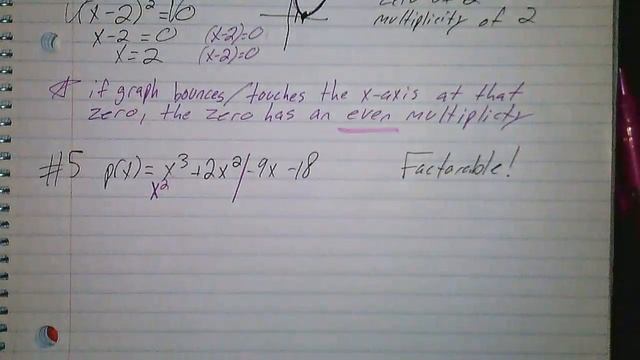 (x-2)² = 0
x-2 = 0 (x-2)=0
x=2 (x-2)=0
multiplicity of 2
☆ if graph bounces/touches the x-axis at that
zero, the zero has an even multiplicty
#5 p(x) = x³+2x²/-9x-18 Factorable!
x²